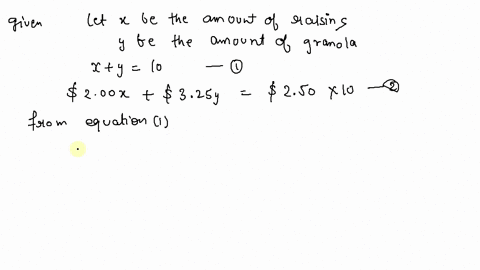 given Let x be the amount of raisins
y be the amount of granola
x + y = 10 — ①
$ 2.00x + $ 3.25y = $ 2.50 × 10 — ②
from equation (1)